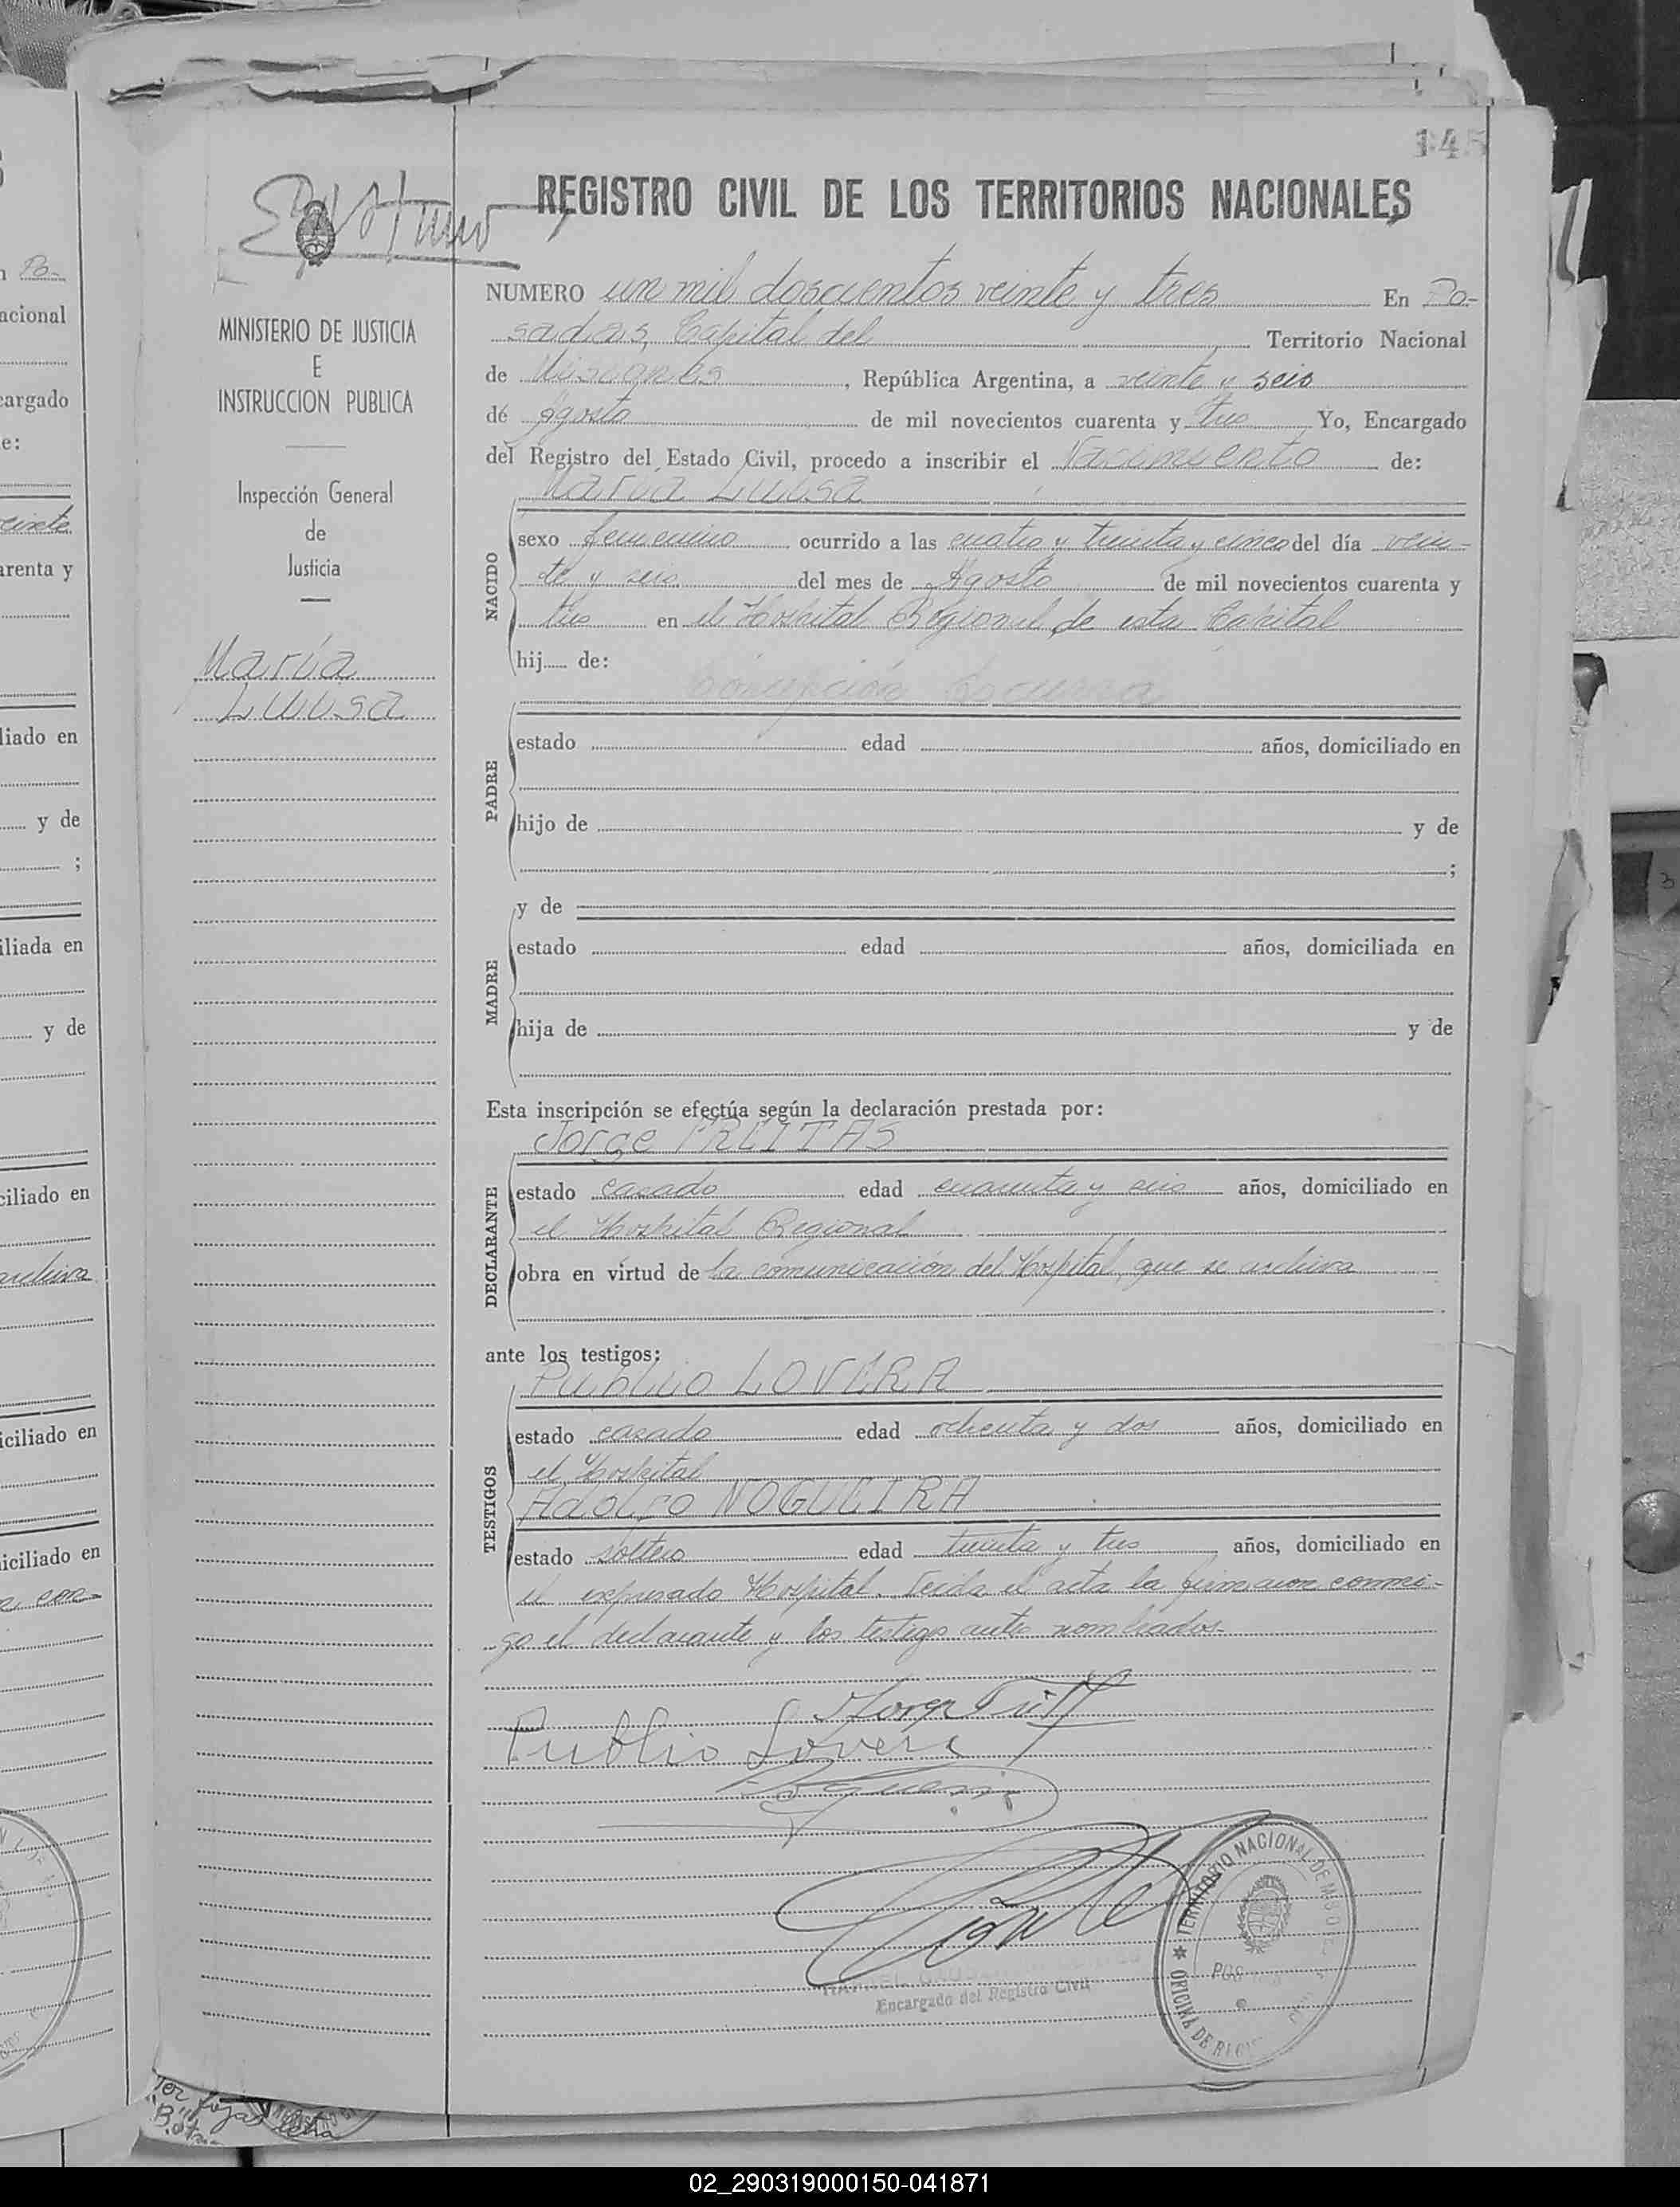 145
REGISTRO CIVIL DE LOS TERRITORIOS NACIONALES
NUMERO un mil doscientos veinte y tres En Po-
sadas, Capital del Territorio Nacional
de Misiones, República Argentina, a veinte y seis
de Agosto de mil novecientos cuarenta y tres Yo, Encargado
del Registro del Estado Civil, procedo a inscribir el Nacimiento de:
María Luisa
NACIDO
sexo femenino ocurrido a las cuatro y treinta y cinco del día vein-
te y seis del mes de Agosto de mil novecientos cuarenta y
tres en el Hospital Regional de esta Capital
hij de:
PADRE
estado edad años, domiciliado en
hijo de y de
;
y de
MADRE
estado edad años, domiciliada en
hija de y de
Esta inscripción se efectúa según la declaración prestada por:
Jorge FREITAS
DECLARANTE
estado casado edad cuarenta y seis años, domiciliado en
el Hospital Regional
obra en virtud de la comunicación del Hospital, que se archiva
ante los testigos:
Publio LOVERA
TESTIGOS
estado casado edad ochenta y dos años, domiciliado en
el Hospital
Adolfo NOGUEIRA
estado soltero edad treinta y tres años, domiciliado en
el expresado Hospital. Leída el acta la firmaron conmi-
go el declarante y los testigo antes nombrados.
Publio Lovera
Encargado del Registro Civil
TERRITORIO NACIONAL DE MISIONES
OFICINA DE
MINISTERIO DE JUSTICIA
E
INSTRUCCION PUBLICA
Inspección General
de
Justicia
María
Luisa
Po-
acional
cargado
e:
veinte
arenta y
liado en
y de
;
iliada en
y de
ciliado en
archiva
iciliado en
iciliado en
02_290319000150-041871